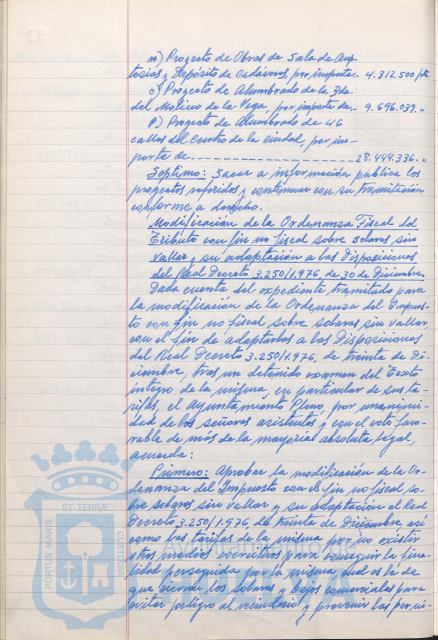 n) Proyecto de Obras de Sala de Aup-
tosias y Depósito de Cadáveres, por importe.- 4.312.500 pts.
o) Proyecto de Alumbrado de la Bda.
del Molino de la Vega, por importe de.- 9.696.039. "
p) Proyecto de Alumbrado de 46
calles del Centro de la Ciudad, por im-
porte de.------------------ 28.444.336. "
Septimo: Sacar a información pública los
proyectos referidos y continuar con su tramitación
conforme a derecho.
Modificación de la Ordenanza Fiscal del
Tributo con fin no fiscal sobre solares sin
vallar y su adaptación a las Disposiciones
del Real Decreto 3.250/1.976, de 30 de Diciembre.
Dada cuenta del expediente tramitado para
la modificación de la Ordenanza del Impues-
to con fin no fiscal sobre solares sin vallar,
con el fin de adaptarlos a las Disposiciones
del Real Decreto 3.250/1.976, de treinta de Di-
ciembre, tras un detenido examen del Texto
integro de la misma, en particular de sus ta-
rifas, el Ayuntamiento Pleno, por unanimi-
dad de los señores asistentes, y con el voto favo-
rable de más de la mayoria absoluta legal,
acuerda:
Primero: Aprobar la modificación de la Or-
denanza del Impuesto con el fin no fiscal so-
bre solares sin vallar y su adaptación al Real
Decreto 3.250/1.976, de treinta de Diciembre, asi
como las tarifas de la misma por no existir
otros medios coercitivos para conseguir la fina-
lidad perseguida por la misma cual es la de
que cierren los solares y bajos comerciales para
evitar peligro al vecindario y prevenir las per-
PORTUS MARIS
ET TERRAE
CUSTODIA